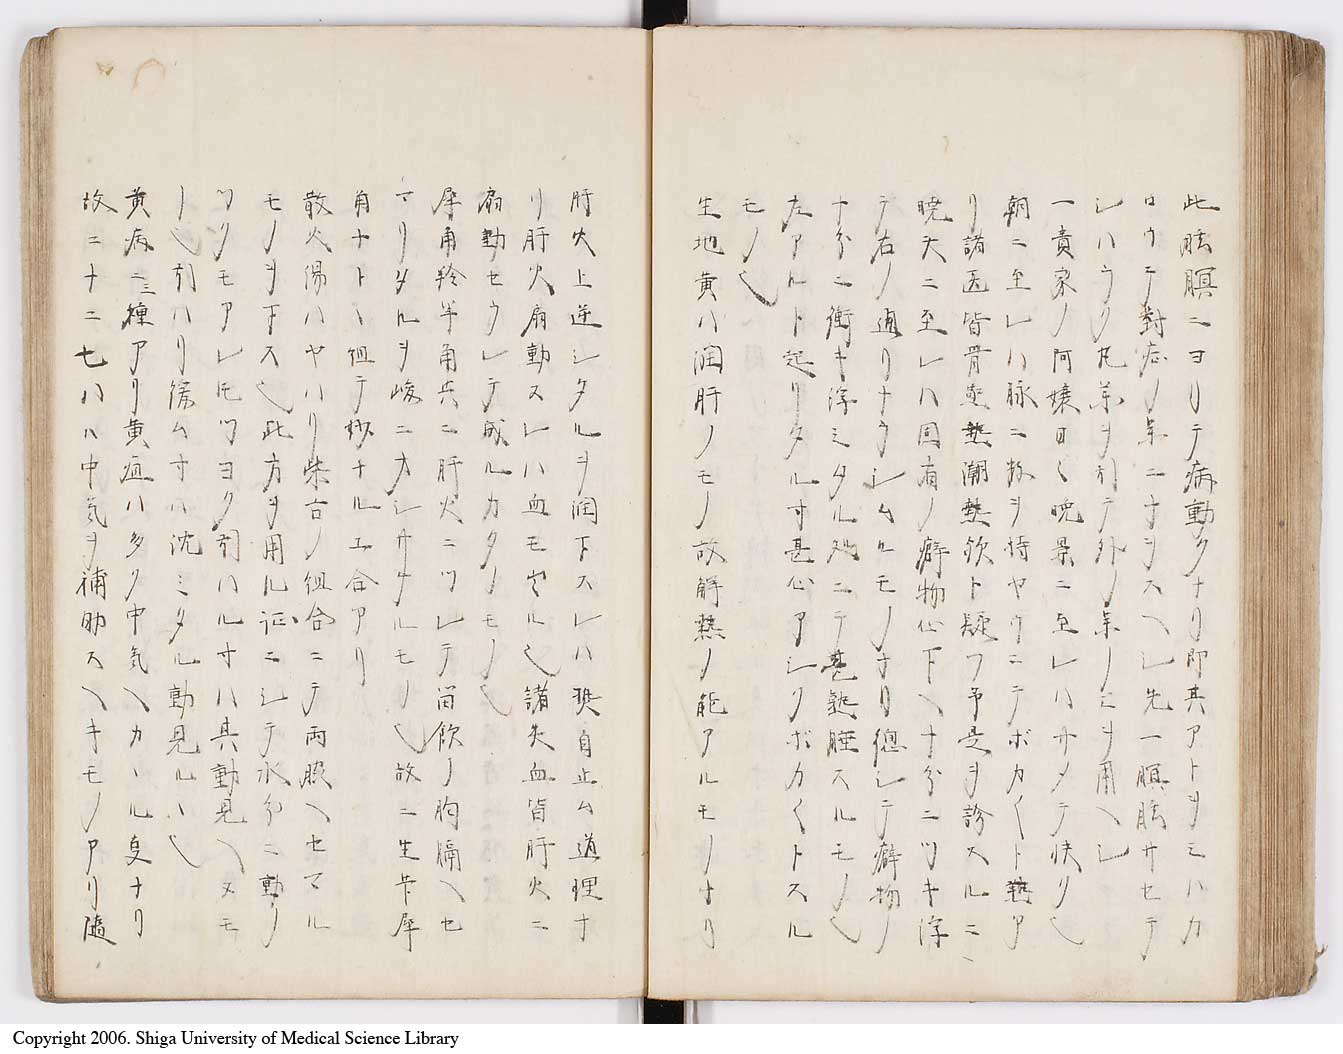 此眩瞑ニヨリテ病動クナリ即其アトヲミハカ
ロウテ對症ノ薬ニテヲスヘシ先一瞑眩サセテ
シハラク丸薬ヲ引テ外ノ薬ノミヲ用ヘシ
一貴家ノ阿嬢日々晩景ニ至レハサメテ快ク
朝ニ至レハ脉ニ数ヲ持ヤウニテボカ〱ト熱ア
リ諸医皆骨蒸熱潮熱欤ト疑フ予是ヲ診スルニ
暁天ニ至レハ固有ノ癖物心下ヘ十分ニツキ浮
テ右ノ通リナラシムルモノナリ總シテ癖物ノ
十分ニ衝キ浮ミタル処ニテ甚熟睡スルモノ也
左アルト起リタル寸甚心アシクボカ〱トスル
モノ也
生地黄ハ潤肝ノモノ故解熱ノ能アルモノナリ
肝火上逆シタルヲ潤下スレハ自止ム道理ナ
リ肝火扇動スレハ血モ出ル也諸失血皆肝火ニ
扇動セラレテ成ルカタノモノ也
犀角羚羊角共ニ肝火ニツレテ留飲ノ胸膈ヘセ
マリタルヲ峻ニオシサクルモノ也故ニ生芐犀
角ナト丶組テ妙ナル工合アリ
散火湯ハヤハリ柴古ノ組合ニテ両脇ヘセマル
モノヲ下ス也此方ヲ用ル証ニシテ水分ニ動ノ
ツクモアレ𪜈ツヨク引ハル寸ハ其動見ヘヌモ
ノ也引ハリ緩ム寸ハ沈ミタル動見ル丶也
黄病ニ三種アリ黄疸ハ多ク中気ヘカ丶ル叓ナリ
故ニ十ニ七八ハ中気ヲ補助スヘキモノアリ隨